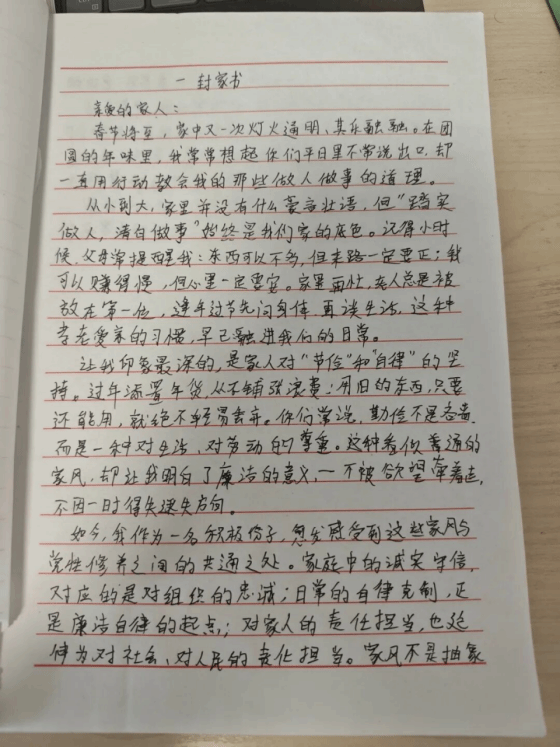 一封家书
亲爱的家人：
春节将至，家中又一次灯火通明、其乐融融。在团
圆的年味里，我常常想起你们平日里不常说出口，却
一直用行动教会我的那些做人做事的道理。
从小到大，家里并没有什么豪言壮语，但“踏实
做人，清白做事”始终是我们家的底色。记得小时
候，父母常提醒我：东西可以不多，但来路一定要正；我
可以赚得慢，但心里一定要安。家里再忙，老人总是被
放在第一位，逢年过节先问身体，再谈生活，这种
孝老爱亲的习惯，早已融进我们的日常。
让我印象最深的，是家人对“节俭”和“自律”的坚
持。过年添置年货，从不铺张浪费；用旧的东西，只要
还能用，就绝不轻易丢弃。你们常说，勤俭不是吝啬，
而是一种对生活、对劳动的尊重。这种看似普通的
家风，却让我明白了廉洁的意义，一不被欲望牵着走，
不因一时得失迷失方向。
如今，我作为一名积极分子，愈发感受到这些家风与
党性修养之间的共通之处。家庭中的诚实守信，
对应的是对组织的忠诚；日常的自律克制，正
是廉洁自律的起点；对家人的责任担当，也延
伸为对社会、对人民的责任担当。家风不是抽象